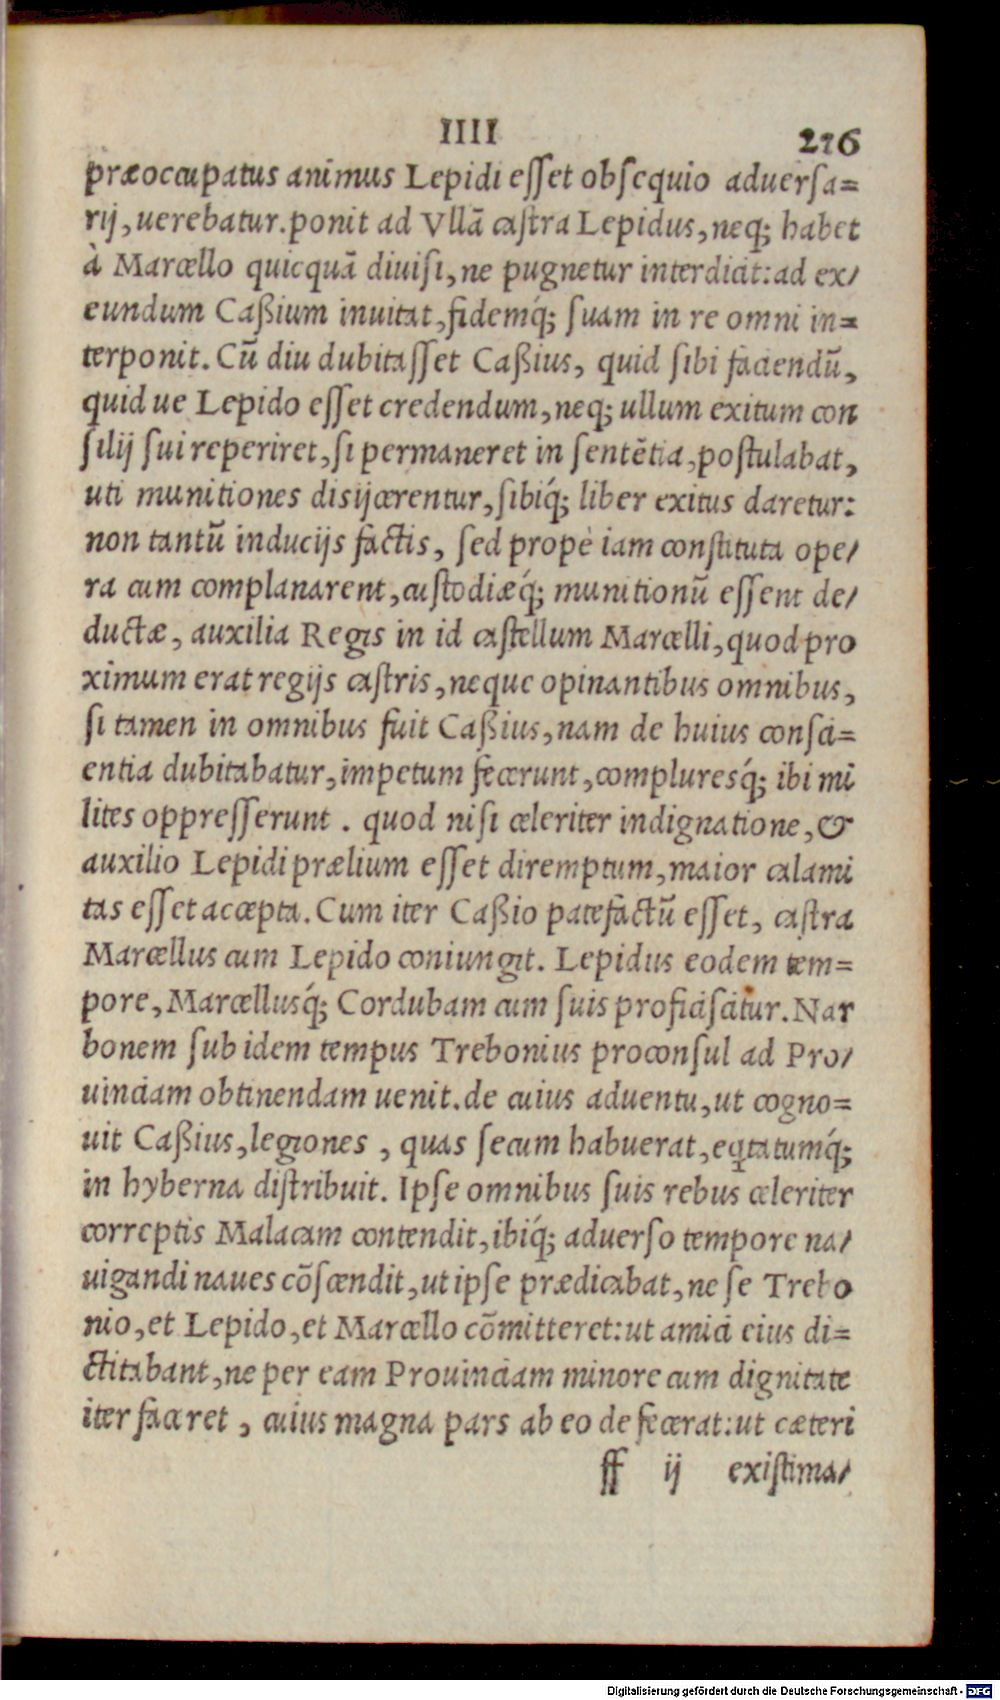 IIII 216
præoccupatus animus Lepidi eſſet obſequio aduerſa=
rij, uerebatur. ponit ad Vllā caſtra Lepidus, neq; habet
à Marcello quicquā diuiſi, ne pugnetur interdicit: ad ex/
eundum Caßium inuitat, fidemq́; ſuam in re omni in=
terponit. Cū diu dubitaſſet Caßius, quid ſibi faciendū,
quid ue Lepido eſſet credendum, neq; ullum exitum con
ſilij ſui reperiret, ſi permaneret in ſentētia, poſtulabat,
uti munitiones disijcerentur, ſibiq́; liber exitus daretur:
non tantū inducijs factis, ſed propè iam conſtituta ope/
ra cum complanarent, cuſtodiæq́; munitionū eſſent de/
ductæ, auxilia Regis in id caſtellum Marcelli, quod pro
ximum erat regijs caſtris, neque opinantibus omnibus,
ſi tamen in omnibus fuit Caßius, nam de huius conſci=
entia dubitabatur, impetum fecerunt, complureſq́; ibi mi
lites oppreſſerunt . quod niſi celeriter indignatione, &
auxilio Lepidi prælium eſſet diremptum, maior calami
tas eſſet accepta. Cum iter Caßio patefactū eſſet, caſtra
Marcellus cum Lepido coniungit. Lepidus eodem tem=
pore, Marcellusq́; Cordubam cum ſuis proficiſcitur. Nar
bonem ſub idem tempus Trebonius proconſul ad Pro/
uinciam obtinendam uenit. de cuius aduentu, ut cogno=
uit Caßius, legiones , quas ſecum habuerat, eqtatumq́;
in hyberna diſtribuit. Ipſe omnibus ſuis rebus celeriter
correptis Malacam contendit, ibiq́; aduerſo tempore na/
uigandi naues cōſcendit, ut ipſe prædicabat, ne ſe Trebo
nio, et Lepido, et Marcello cōmitteret: ut amici eius di=
ctitabant, ne per eam Prouinciam minore cum dignitate
iter faceret , cuius magna pars ab eo defecerat: ut cæteri
ff ij exiſtima/
Digitalisierung gefördert durch die Deutsche Forschungsgemeinschaft - DFG